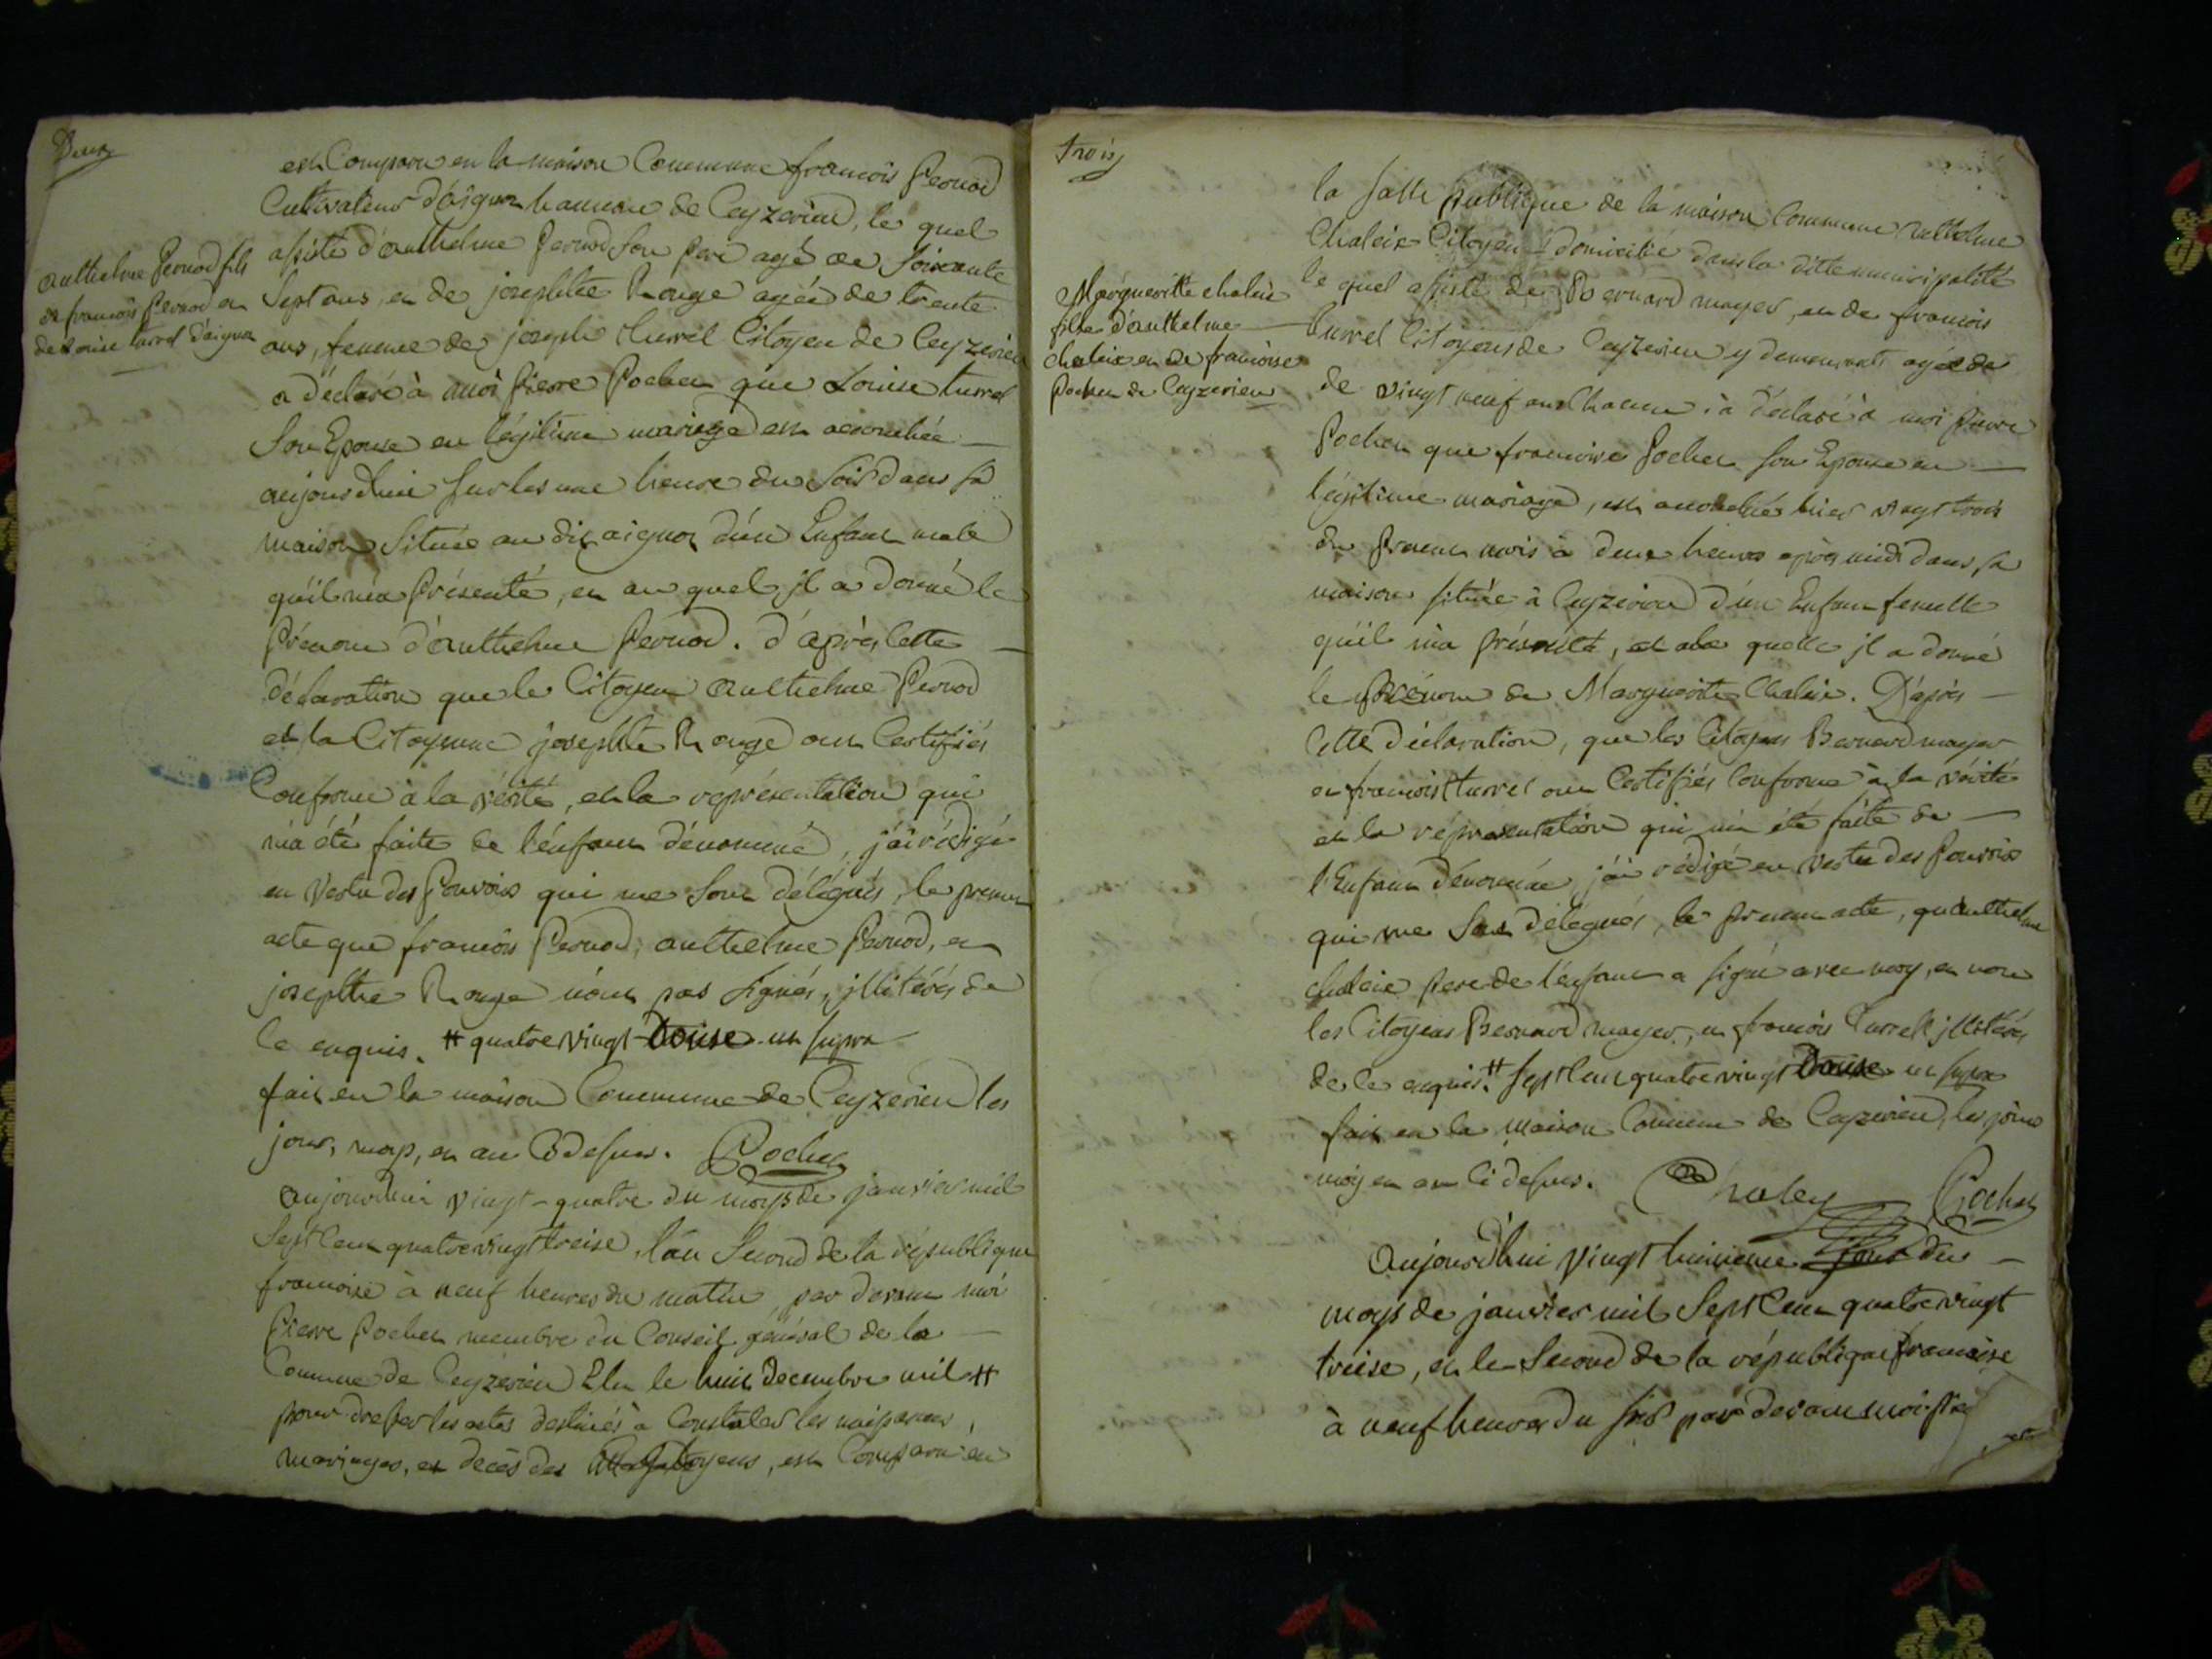 Deux
anthelme Pernod fils
de francois Pernod et
de Louise turrel d'aignoz
est Comparu en la maison Commune francois Pernod
Cultivateur d'aignoz hameau de Ceyzerieu, le quel
assisté d'anthelme Pernod son pere agé de soixante
Sept ans, et de josephte Rouge agée de trente
ans, femme de joseph turrel Citoyen de Ceyzerieu
a déclaré à moi Pierre Pochet que Louise turrel
Son Epouse en légitime mariage est accouchée
aujourdhui sur les une heure du soir dans sa
maison située au dit aignoz d'un Enfant male
qu'il m'a Présenté, et au quel il a donné le
Prénom d'anthelme Pernod. d'après cette
déclaration que le Citoyen anthelme Pernod
et la Citoyenne josephte Rouge ont Certifiés
Conforme à la vérité, et la représentation qui
m'a été faite de l'enfant dénommé, j'ai rédigé
en vertu des Pouvoirs qui me sont délégués, le present
acte que francois Pernod, anthelme Pernod, et
josephte Rouge n'ont pas signés, illitérés de
ce enquis. # quatre vingt douse ut supra
fait en la maison Commune de Ceyzerieu les
jour, moys, et an Cidessus. Pochet
aujourdhui vingt-quatre du moys de janvier mil
Sept Cent quatre vingt treise, l'an Second de la république
francoise à neuf heures du matin, par devant moi
Pierre Pochet membre du Conseil général de la
Commune de Ceyzerieu Elu le huit decembre mil #
pour dresser les actes destinés à Constater les naissances,
mariages, et decès des Citoyens, est Comparu en
trois
Margueritte chaleix
fille d'anthelme
Chaleix et de francoise
Pochet de Ceyzerieu
la salle publique de la maison Commune anthelme
Chaleix Citoyen domicilié dans la ditte municipalité
le quel assisté de Bernard mayer, et de francois
turrel Citoyens de Ceyzerieu y demeurants agés de
de vingt neuf ans chacun; a déclaré à moi Pierre
Pochet que francoise Pochet son Epouse en
légitime mariage, est accouchée hier vingt trois
du present mois à deux heures après midi dans sa
maison située à Ceyzerieu d'un Enfant femelle
qu'il m'a présenté, et a la quelle il a donné
le Prénom de Marguerite Chaleix. D'après
Cette déclaration, que les Citoyens Bernard mayer
et francois turrel ont Certifiés Conforme à la vérité
et la représentation qui m'a été faite de
l'Enfant dénommée j'ai rédigé en vertu des Pouvoirs
qui me sont délégués, le present acte, qu'anthelme
chaleix Pere de l'enfant a signé avec moy, et non
les Citoyens Bernard mayer, et francois turrel illitérés
de ce enquis. # sept Cent quatre vingt douse ut supra
fait en la maison Commune de Ceyzerieu, les jour
moys et an Ci dessus. Chaley Pochet
Aujourdhui vingt huitieme jour du
moys de janvier mil Sept Cent quatre vingt
treise, et le Second de la république francoise
à neuf heures du soir par devant moi Pie